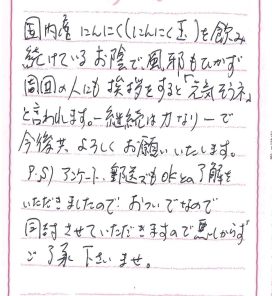 国内産にんにく(にんにく玉)を飲み
続けているお陰で、風邪もひかず
周囲の人にも挨拶をすると「元気そうネ」
と言われます。―継続は力なり―で
今後共、よろしくお願いいたします。
P.S) アンケート、郵送でもOKとの了解を
いただきましたので おついでなので
同封させていただきますので悪しからず
ご了承下さいませ。